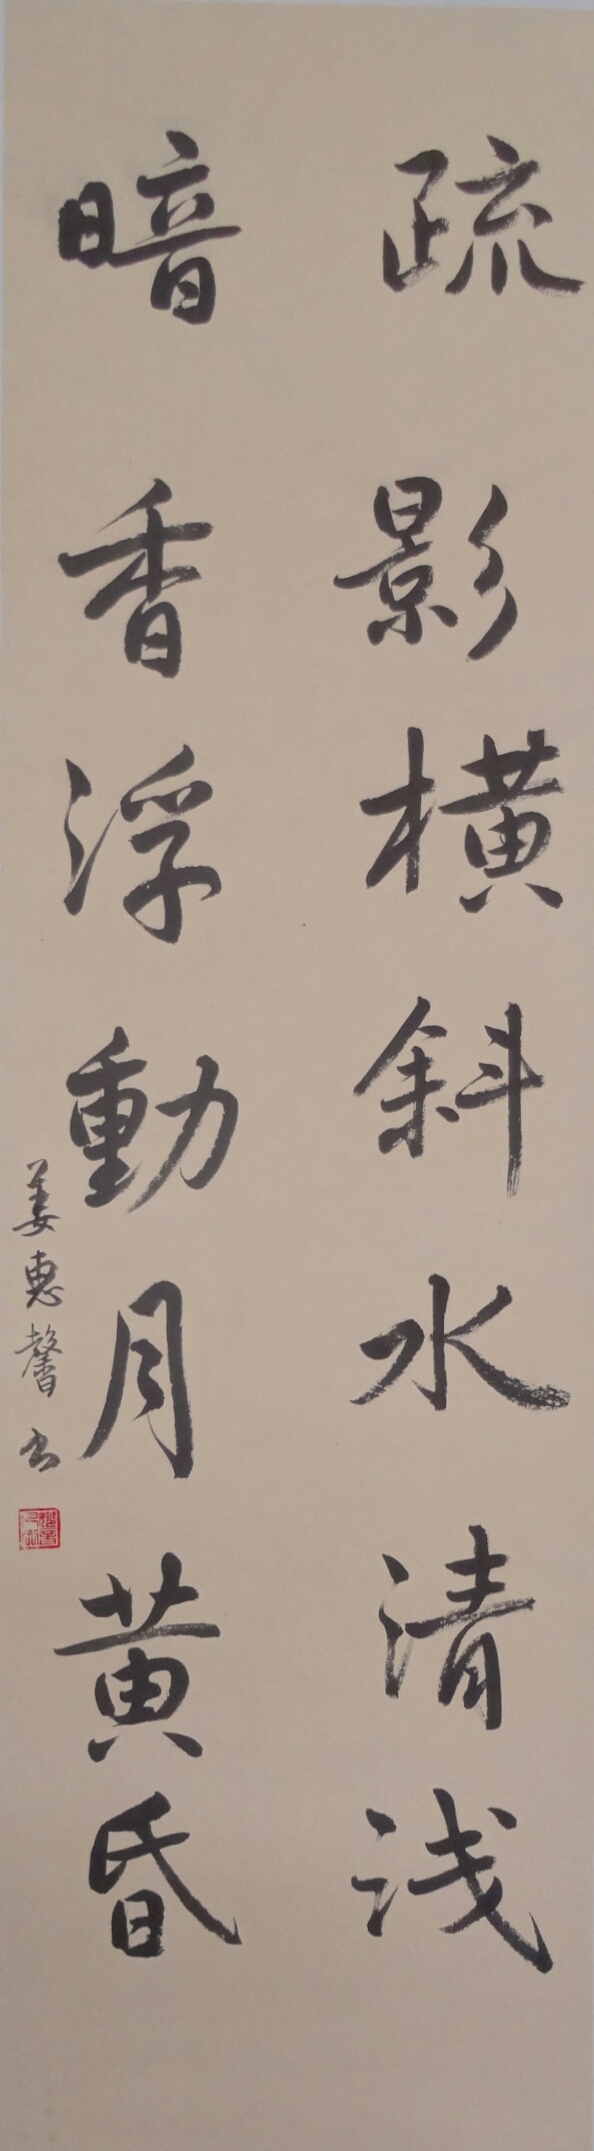 疏影横斜水清浅
暗香浮動月黄昏
姜惠馨书